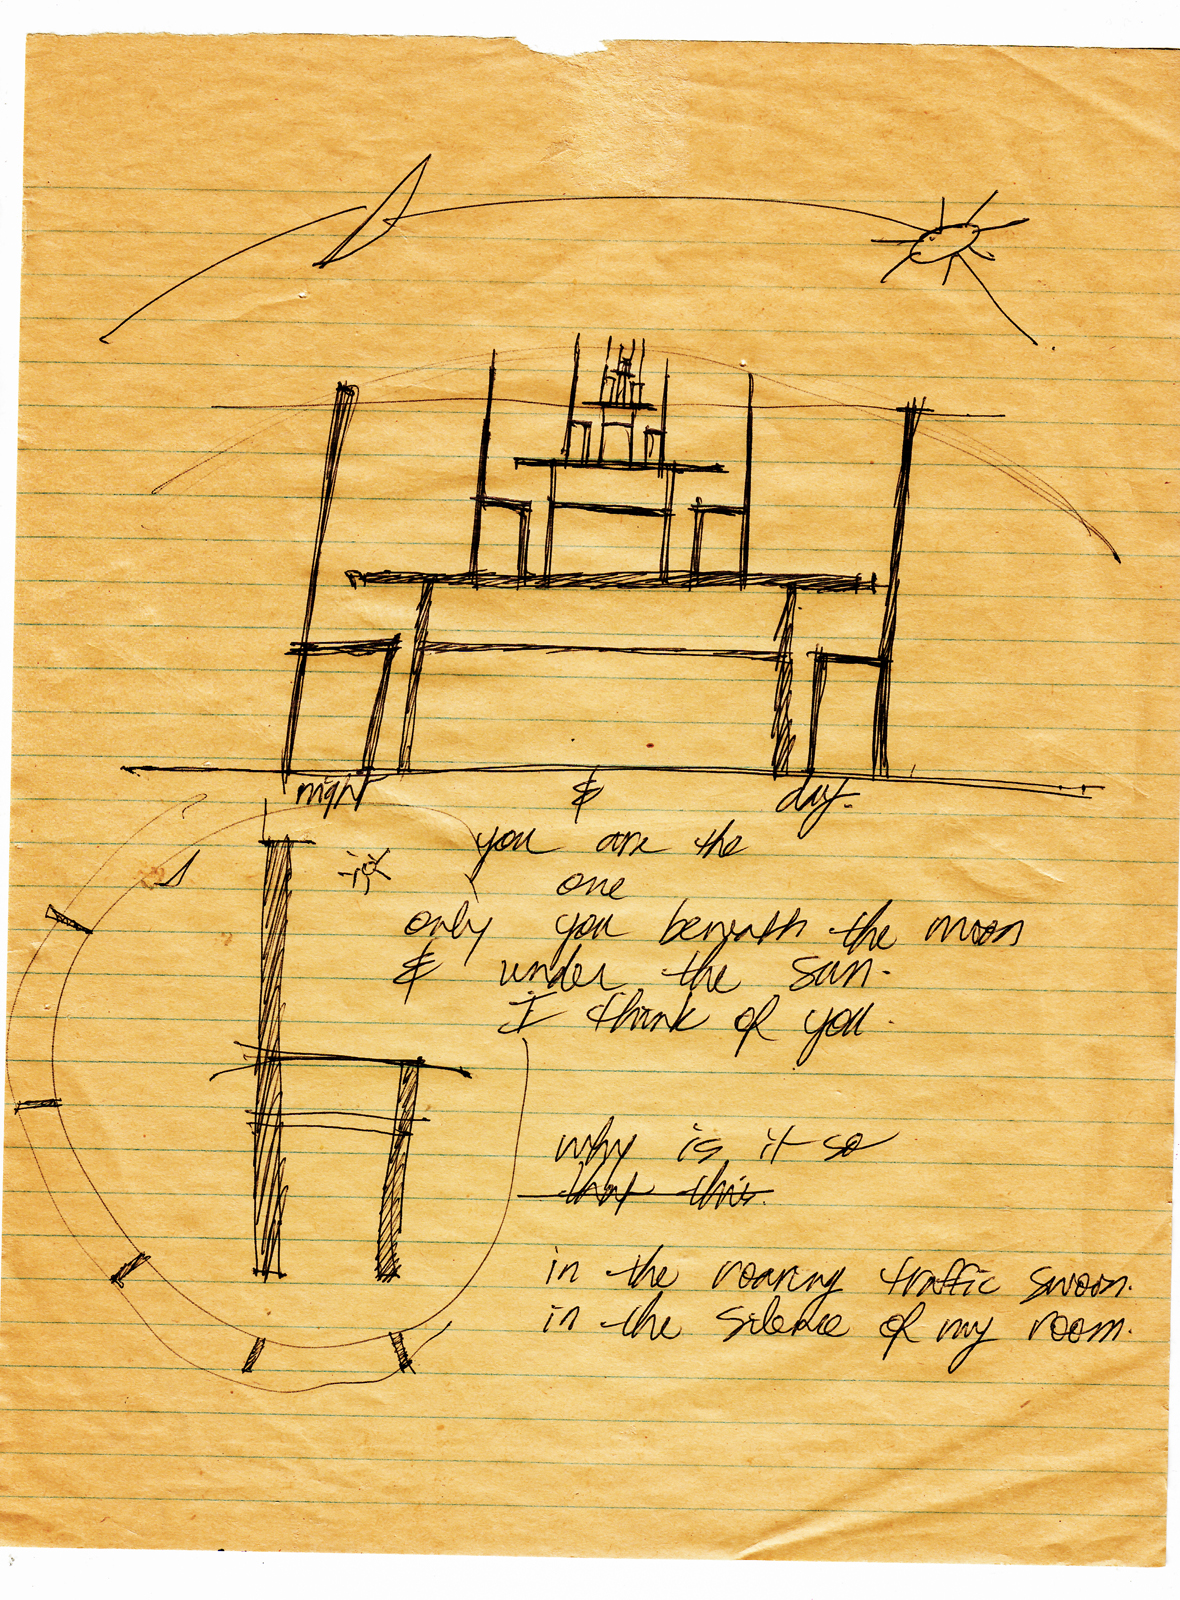 night & day.
you are the
one
only you beneath the moon
& under the sun.
I think of you.
why is it so
that this.
in the roaring traffic swoon.
in the silence of my room.